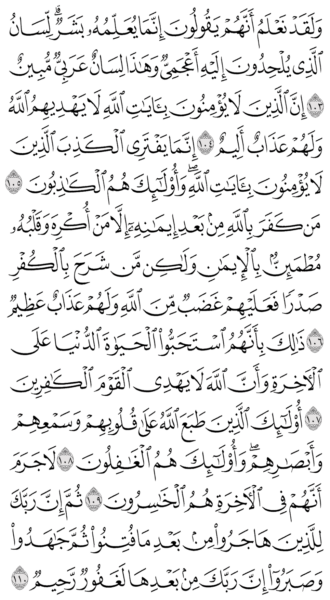 وَلَقَدْ نَعْلَمُ أَنَّهُمْ يَقُولُونَ إِنَّمَا يُعَلِّمُهُۥ بَشَرٌۗ لِّسَانُ
ٱلَّذِى يُلْحِدُونَ إِلَيْهِ أَعْجَمِىٌّ وَهَٰذَا لِسَانٌ عَرَبِىٌّ مُّبِينٌ
١٠٣ إِنَّ ٱلَّذِينَ لَا يُؤْمِنُونَ بِـَٔايَٰتِ ٱللَّهِ لَا يَهْدِيهِمُ ٱللَّهُ
وَلَهُمْ عَذَابٌ أَلِيمٌ ١٠٤ إِنَّمَا يَفْتَرِى ٱلْكَذِبَ ٱلَّذِينَ
لَا يُؤْمِنُونَ بِـَٔايَٰتِ ٱللَّهِۖ وَأُو۟لَٰٓئِكَ هُمُ ٱلْكَٰذِبُونَ ١٠٥
مَن كَفَرَ بِٱللَّهِ مِنۢ بَعْدِ إِيمَٰنِهِۦٓ إِلَّا مَنْ أُكْرِهَ وَقَلْبُهُۥ
مُطْمَئِنٌّۢ بِٱلْإِيمَٰنِ وَلَٰكِن مَّن شَرَحَ بِٱلْكُفْرِ
صَدْرًا فَعَلَيْهِمْ غَضَبٌ مِّنَ ٱللَّهِ وَلَهُمْ عَذَابٌ عَظِيمٌ
١٠٦ ذَٰلِكَ بِأَنَّهُمُ ٱسْتَحَبُّوا۟ ٱلْحَيَوٰةَ ٱلدُّنْيَا عَلَى
ٱلْءَاخِرَةِ وَأَنَّ ٱللَّهَ لَا يَهْدِى ٱلْقَوْمَ ٱلْكَٰفِرِينَ
١٠٧ أُو۟لَٰٓئِكَ ٱلَّذِينَ طَبَعَ ٱللَّهُ عَلَىٰ قُلُوبِهِمْ وَسَمْعِهِمْ
وَأَبْصَٰرِهِمْۖ وَأُو۟لَٰٓئِكَ هُمُ ٱلْغَٰفِلُونَ ١٠٨ لَا جَرَمَ
أَنَّهُمْ فِى ٱلْءَاخِرَةِ هُمُ ٱلْخَٰسِرُونَ ١٠٩ ثُمَّ إِنَّ رَبَّكَ
لِلَّذِينَ هَاجَرُوا۟ مِنۢ بَعْدِ مَا فُتِنُوا۟ ثُمَّ جَٰهَدُوا۟
وَصَبَرُوٓا۟ إِنَّ رَبَّكَ مِنۢ بَعْدِهَا لَغَفُورٌ رَّحِيمٌ ١١٠